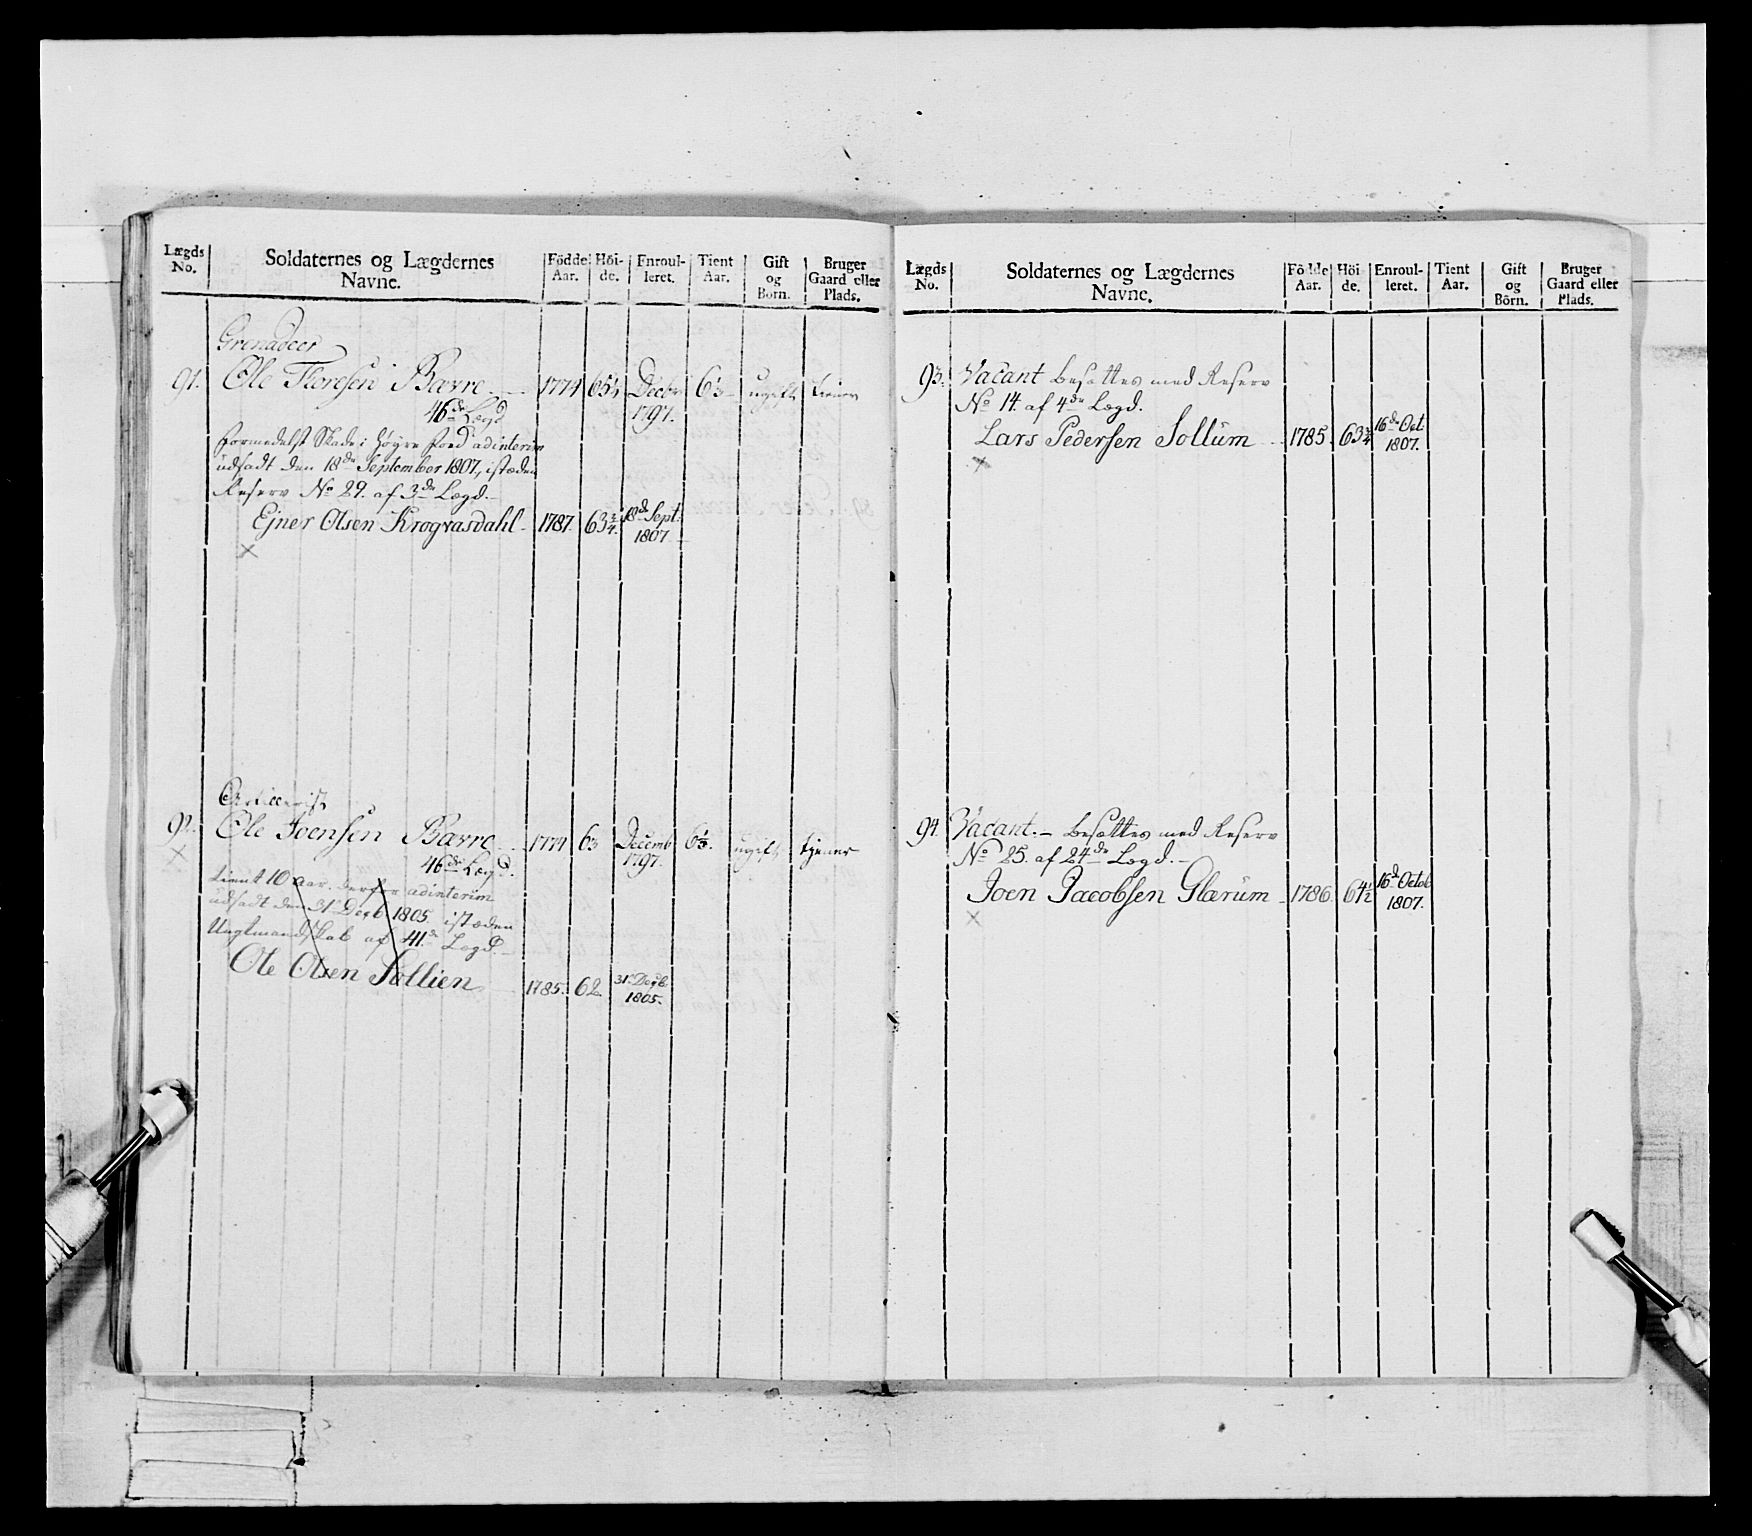 Lægds No. Soldaternes og Lægdernes Navne. Födde Aar. Höi- de. Enroul- leret. Tient Aar. Gift og Börn. Bruger Gaard eller Plads.
Grenadeer
91. Ole Thoresen Bævre 1774 65½ Decbr 1797. 6⅓ ugift tiener
46de Lægd
formedelst Skade i høyre Foed adinterim
udsadt den 18de September 1807, istæden
Reserv No 29. af 3de Lægd.
Ejner Olsen Krogvasdahl 1787. 63¾. 18de Sept. 1807
×
Artillerist
92. Ole Joensen Bævre 1774 63 Decemb 1797. 6⅓. ugift tjener
× 46de Lægd.
tient 10 Aar. derfor adinterim
udsadt den 31te Decb 1805. istæden
Ungtmandskab af 41de Lægd.
Ole Olsen Sollien 1785. 62. 31te Decb. 1805.
Lægds No. Soldaternes og Lægdernes Navne. Födde Aar. Höi- de. Enroul- leret. Tient Aar. Gift og Börn. Bruger Gaard eller Plads.
93. Vacant besættes med Reserv
No 14. af 4de Lægd.
Lars Pedersen Sollum 1785. 63¾ 16de Oct. 1807.
×
94. Vacant. besættes med Reserv
No 25. af 24de Lægd.
Joen Jacobsen Glærum 1786. 64½ 16de Octob 1807.
×